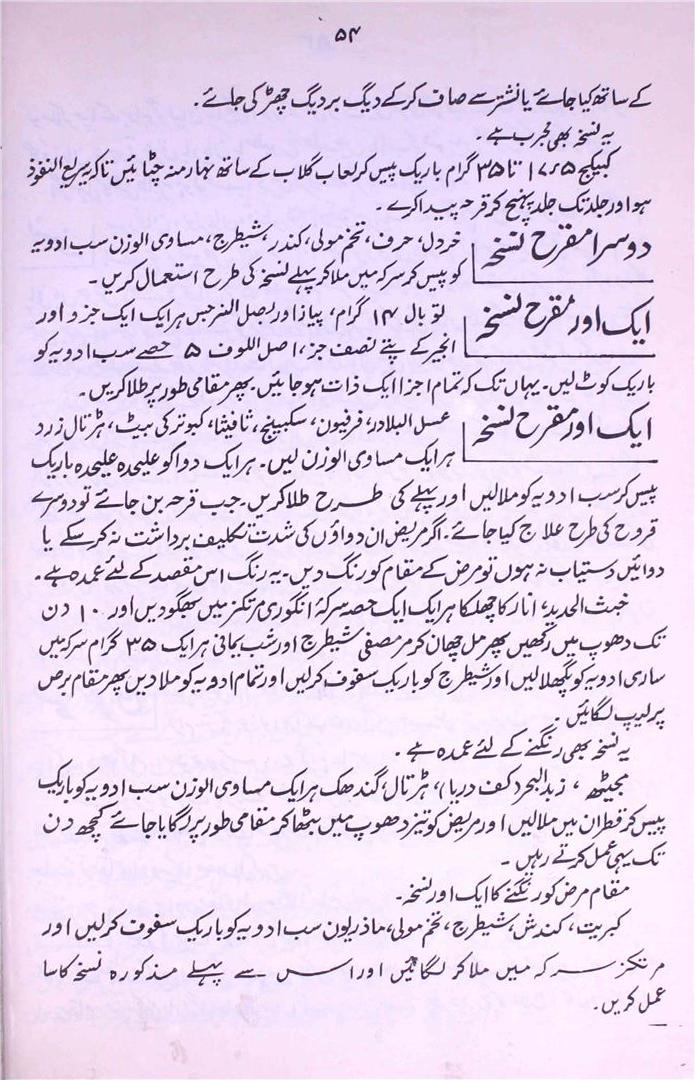 ۵۴
کے ساتھ کیا جائے یا نشتر سے صاف کر کے دیگ بر دیگ چھڑکی جائے۔
یہ نسخہ بھی مجرب ہے۔
کبیکج ۱۷٫۵ تا ۳۵ گرام باریک پیس کر لعاب گلاب کے ساتھ نہار منہ چٹائیں تاکہ سریع النفوذ
ہو اور جلد تک جلد پہنچ کر قرحہ پیدا کرے۔
دوسرا مقرح نسخہ
خردل، حرف، تخم مولی، کندر، شیطرج، مساوی الوزن سب ادویہ
کو پیس کر سرکہ میں ملا کر پہلے نسخہ کی طرح استعمال کریں۔
ایک اور مقرح نسخہ
تو بال ۱۴ گرام، پیاز اور بصل النرجس ہر ایک ایک جزو اور
انجیر کے پتے نصف جز، اصل اللوف ۵ حصے سب ادویہ کو
باریک کوٹ لیں۔ یہاں تک کہ تمام اجزا ایک ذات ہو جائیں پھر مقامی طور پر طلا کریں۔
ایک اور مقرح نسخہ
عسل البلادر، فرفیون، سکبینج، ثافیثا، کبوتر کی بیٹ، ہڑتال زرد
ہر ایک مساوی الوزن لیں۔ ہر ایک دوا کو علیحدہ علیحدہ باریک
پیس کر سب ادویہ کو ملا لیں اور پہلے کی طرح طلا کریں۔ جب قرحہ بن جائے تو دوسرے
قروح کی طرح علاج کیا جائے۔ اگر مریض ان دواؤں کی شدت تکلیف برداشت نہ کر سکے یا
دوائیں دستیاب نہ ہوں تو مرض کے مقام کو رنگ دیں۔ یہ رنگ اس مقصد کے لئے عمدہ ہے۔
خبث الحدید، انار کا چھلکا ہر ایک ایک حصہ سرکۂ انگوری مرتکز میں بھگو دیں اور ۱۰ دن
تک دھوپ میں رکھیں پھر مل چھان کر مر مصفی شیطرج اور شب یمانی ہر ایک ۳۵ گرام سرکہ میں
ساری ادویہ کو پگھلا لیں اور شیطرج کو باریک سفوف کر لیں اور تمام ادویہ کو ملا دیں پھر مقام برص
پر لیپ لگائیں۔
یہ نسخہ بھی رنگنے کے لئے عمدہ ہے۔
مجیٹھ، زبدالبحر (کف دریا)، ہڑتال، گندھک ہر ایک مساوی الوزن سب ادویہ کو باریک
پیس کر قطران میں ملا لیں اور مریض کو تیز دھوپ میں بٹھا کر مقامی طور پر لگایا جائے کچھ دن
تک یہی عمل کرتے رہیں۔
مقام مرض کو رنگنے کا ایک اور نسخہ۔
کبریت، کندش، شیطرج، تخم مولی، ماذریون سب ادویہ کو باریک سفوف کر لیں اور
مرتکز سرکہ میں ملا کر لگائیں اور اس سے پہلے مذکورہ نسخہ کا سا
عمل کریں۔